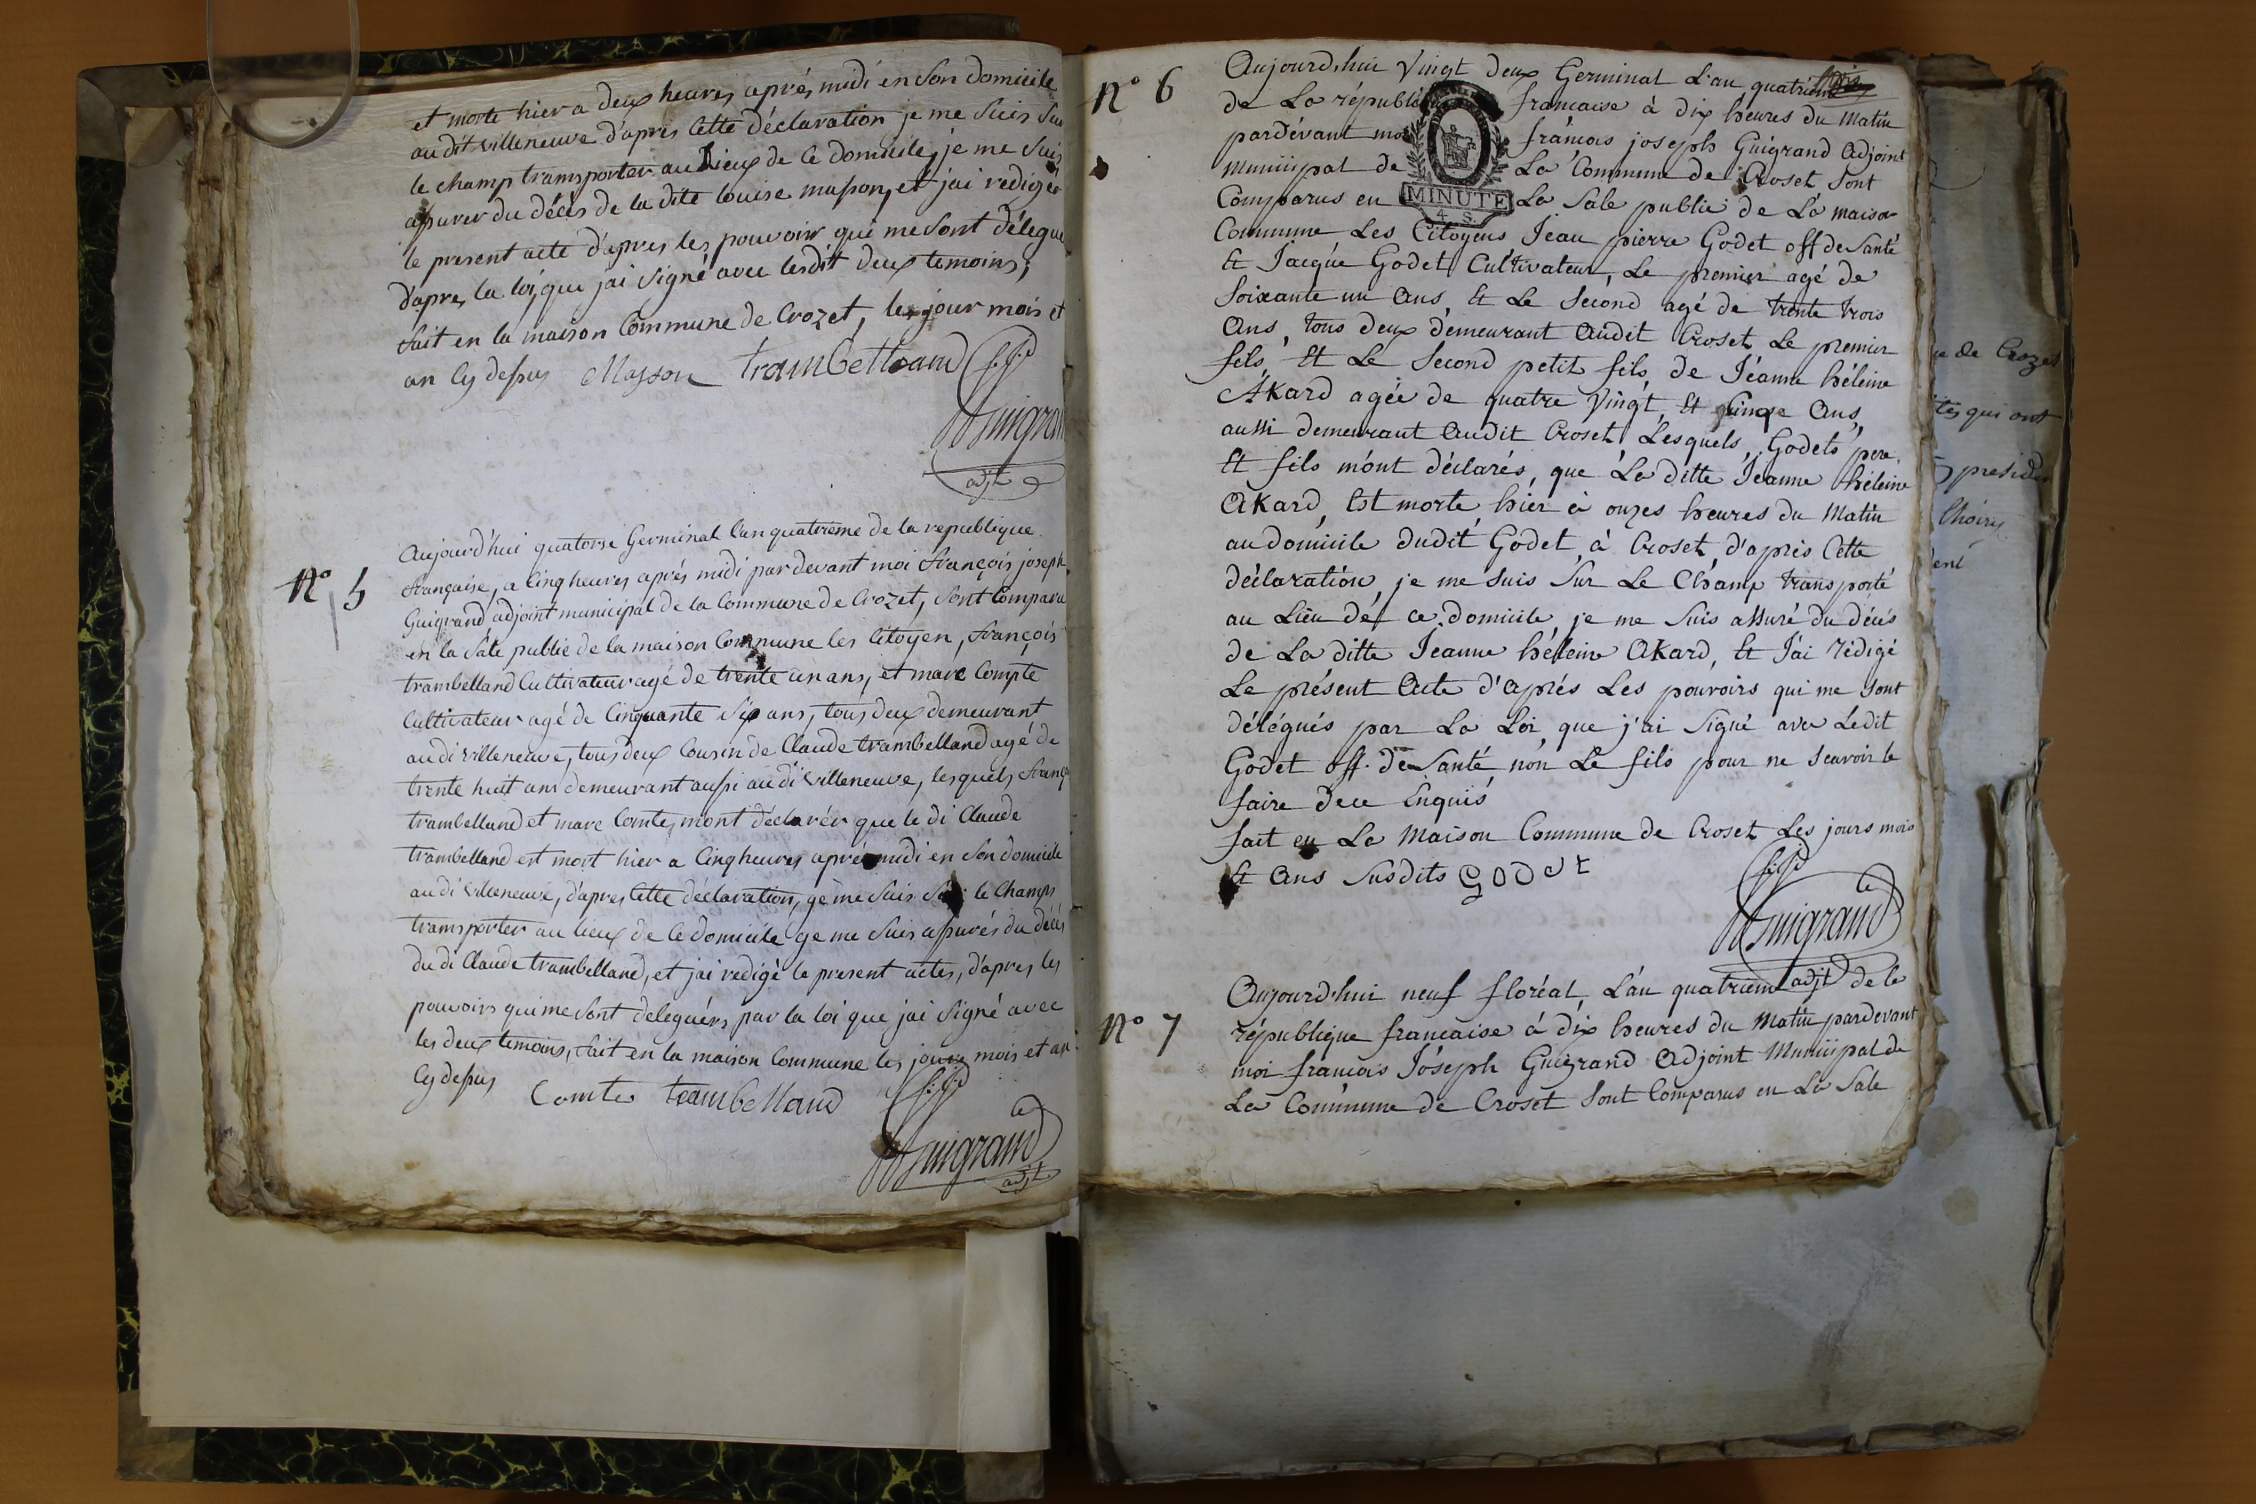 et morte hier a deux heures aprés midi en Son domicile
audit villeneuve d'aprés Cette déclaration je me Suis Sur
le champ transporter au Lieux de Ce domicile, je me Suis
assurer du décès de la dite louise masson, et jai redigée
le present acte d'apres les pouvoir qui me Sont délegue
d'apres la loi, que jai Signé avec lesdit deux temoins,
fait en la maison Commune de Crozet, les jour mois et
an Cy dessus Masson trambelland
Guigrand
adjt
N° 5
Aujourd'hui quatorse Germinal l'an quatrieme de la republique
française, a Cinq heures aprés midi par devant moi François joseph
Guigrand, adjoint municipal de la Commune de Crozet, Sont Comparu
en la Sale public de la maison Commune les Citoyen, François
trambelland Cultivateur agé de trente un ans, et marc Compte
Cultivateur agé de Cinquante Six ans, tous deux demeurant
audi villeneuve, tous deux Cousin de Claude trambelland agé de
trente huit ans demeurant aussi audi villeneuve, lesquels, franç
trambelland et marc Comte, mont déclarér que le di Claude
trambelland est mort hier a Cinq heures aprés midi en Son domicile
audi villeneuve, d'apres Cette déclaration, ge me Suis Sur le Champs
transporter au lieux de Ce domicile ge me Suis assurés du décès
du di Claude trambelland, et jai redigé le present actes, d'apres les
pouvoirs qui me Sont deleguérs par la loi que jai Signé avec
les deux temoins, fait en la maison Commune les jours mois et an
Cy dessus Comte trambelland
Guigrand
adjt
N° 6
Aujourd'hui Vingt deux Germinal L'an quatriem
de La républi francaise à dix heures du Matin
pardévant moi francois joseph Guigrand Adjoint
Municipal de La Commune de Croset Sont
Comparus en La Sale public de La maison
MINUTE
4. S.
Commune Les Citoyens Jean pierre Godet off de Santé
Et Jacque Godet Cultivateur, Le premier agé de
Soixante un Ans, Et Le Second agé de trente trois
Ans, tous deux demeurant Audit Croset, Le premier
fils, Et Le Second petit fils, de Jéanne héleine
Akard agée de quatre Vingt, Et Ans,
aussi demeurant Audit Croset, Lesquels, Godets pere
Et fils m'ont déclarés, que La ditte Jéanne héleine
Akard, Est morte, hier à onzes heures du Matin
au domicile dudit Godet, à Croset, d'aprés Cette
déclaration, je me suis Sur Le Champ transporté
au Lieu de ce domicile, je me Suis assuré du décés
de La ditte Jeanne héleine Akard, Et J'ai rédigé
Le présent Acte d'aprés Les pouvoirs qui me sont
délégués par La Loi, que j'ai Signé avec Ledit
Godet off. de Santé, non Le fils pour ne Scavoir le
faire dece Enquis
fait en La Maison Commune de Croset Les jours mois
Et Ans Susdits GODet
Guigrand
adjt
N° 7
Aujourd'hui neuf floréal, L'an quatriem de la
république francaise à dix heures du Matin pardevant
moi francois Joseph Guigrand Adjoint Municipal de
La Commune de Croset Sont Comparus en La Sale
de Crozet
tes qui ont
preside
Choisy
ent